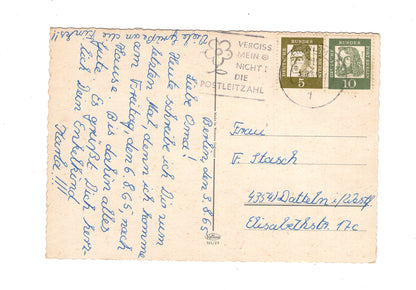 Berlin, den 3.8.65
Liebe Oma!
Heute schreibe ich Dir zum
letzten Mal, denn ich komme
am Freitag, den 6.8.65, nach
Hause. Bis dahin alles
Gute. Es grüßt Dich herz-
lich Dein Enkelkind
Viele Grüße an die
VERGISS
MEIN
NICHT!
DIE
POSTLEITZAHL
DEUTSCHE
BUNDES
POST
5
DEUTSCHE
BUNDES
POST
10
Frau
F. Stasch
4354) Datteln i/Westf.
Elisabethstr. 17c